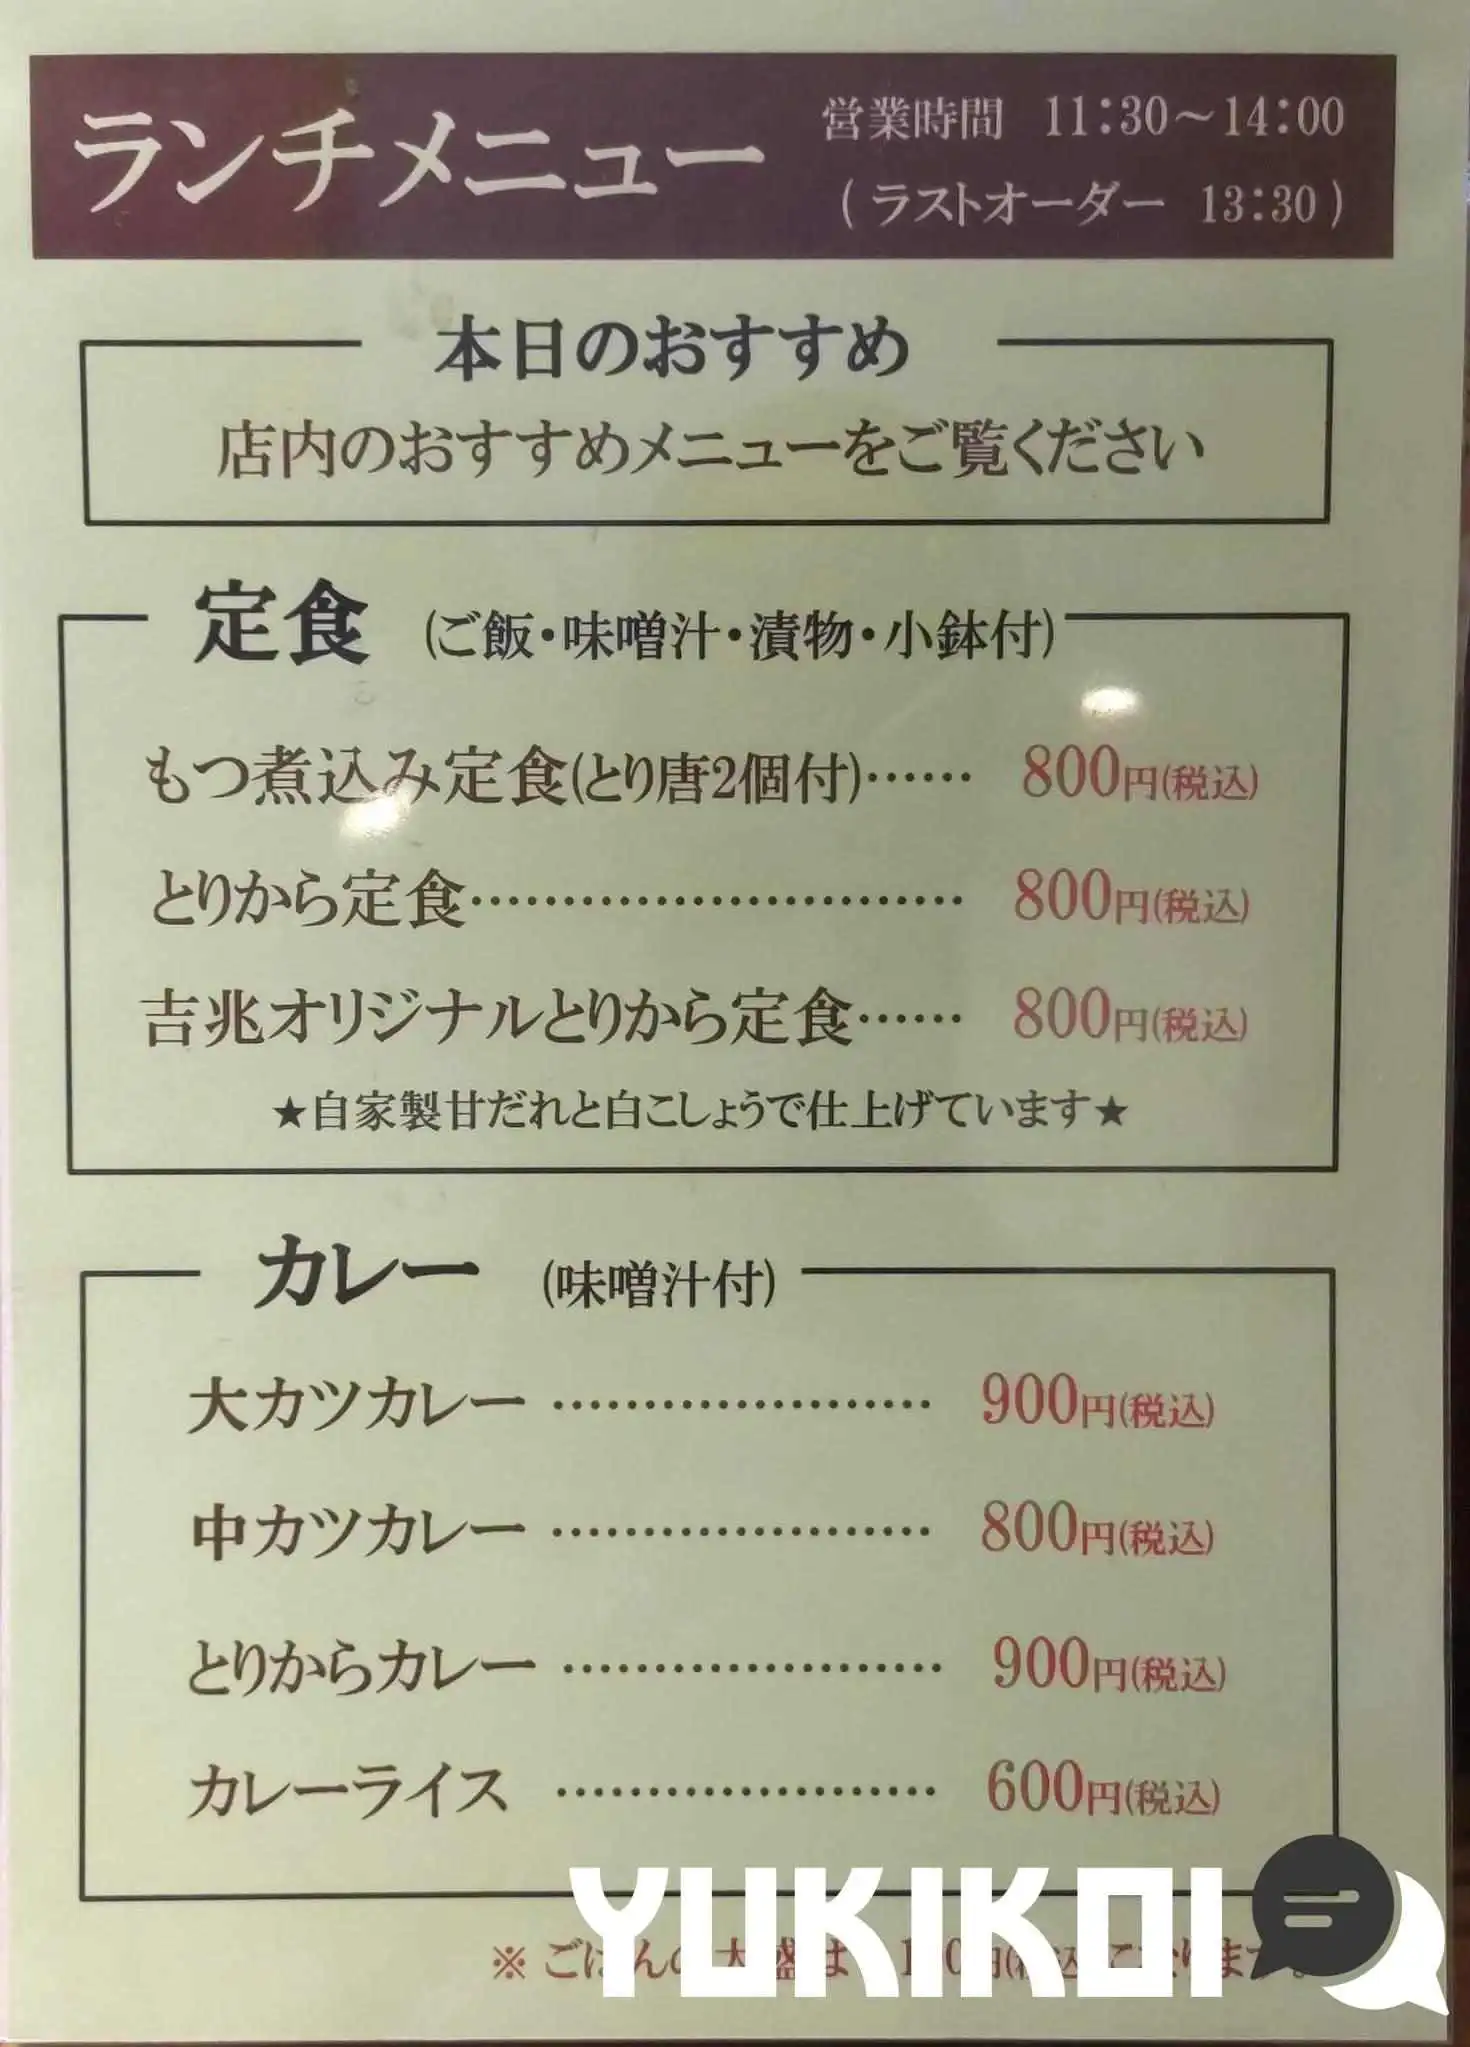 ランチメニュー
営業時間 11:30～14:00
(ラストオーダー 13:30)
本日のおすすめ
店内のおすすめメニューをご覧ください
定食 (ご飯・味噌汁・漬物・小鉢付)
もつ煮込み定食(とり唐2個付)…… 800円(税込)
とりから定食………………………… 800円(税込)
吉兆オリジナルとりから定食…… 800円(税込)
★自家製甘だれと白こしょうで仕上げています★
カレー (味噌汁付)
大カツカレー ………………… 900円(税込)
中カツカレー ………………… 800円(税込)
とりからカレー ………………… 900円(税込)
カレーライス ………………… 600円(税込)
※ ごはんの大盛は 円(税込)になります。
YUKIKOI